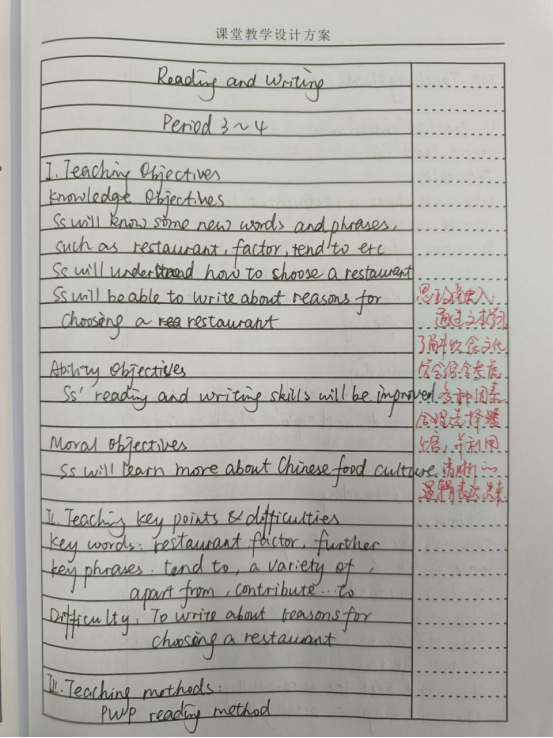 课堂教学设计方案
Reading and Writing
Period 3~4
I. Teaching Objectives
Knowledge Objectives
Ss will know some new words and phrases,
such as restaurant, factor, tend to etc
Ss will understand how to shoose a restaurant
Ss will be able to write about reasons for
choosing a restaurant
Ability Objectives
Ss' reading and writing skills will be improved
Moral Objectives
Ss will learn more about Chinese food culture
II. Teaching key points & difficulties
Key words: restaurant factor, further
Key phrases: tend to, a variety of,
apart from, contribute... to
Difficulty: To write about reasons for
choosing a restaurant
III. Teaching methods:
PWP reading method
通过文本学习
饮食文化
学会综合考虑
各种因素
合理选择餐
馆,并利用
清晰的
逻辑表达出来